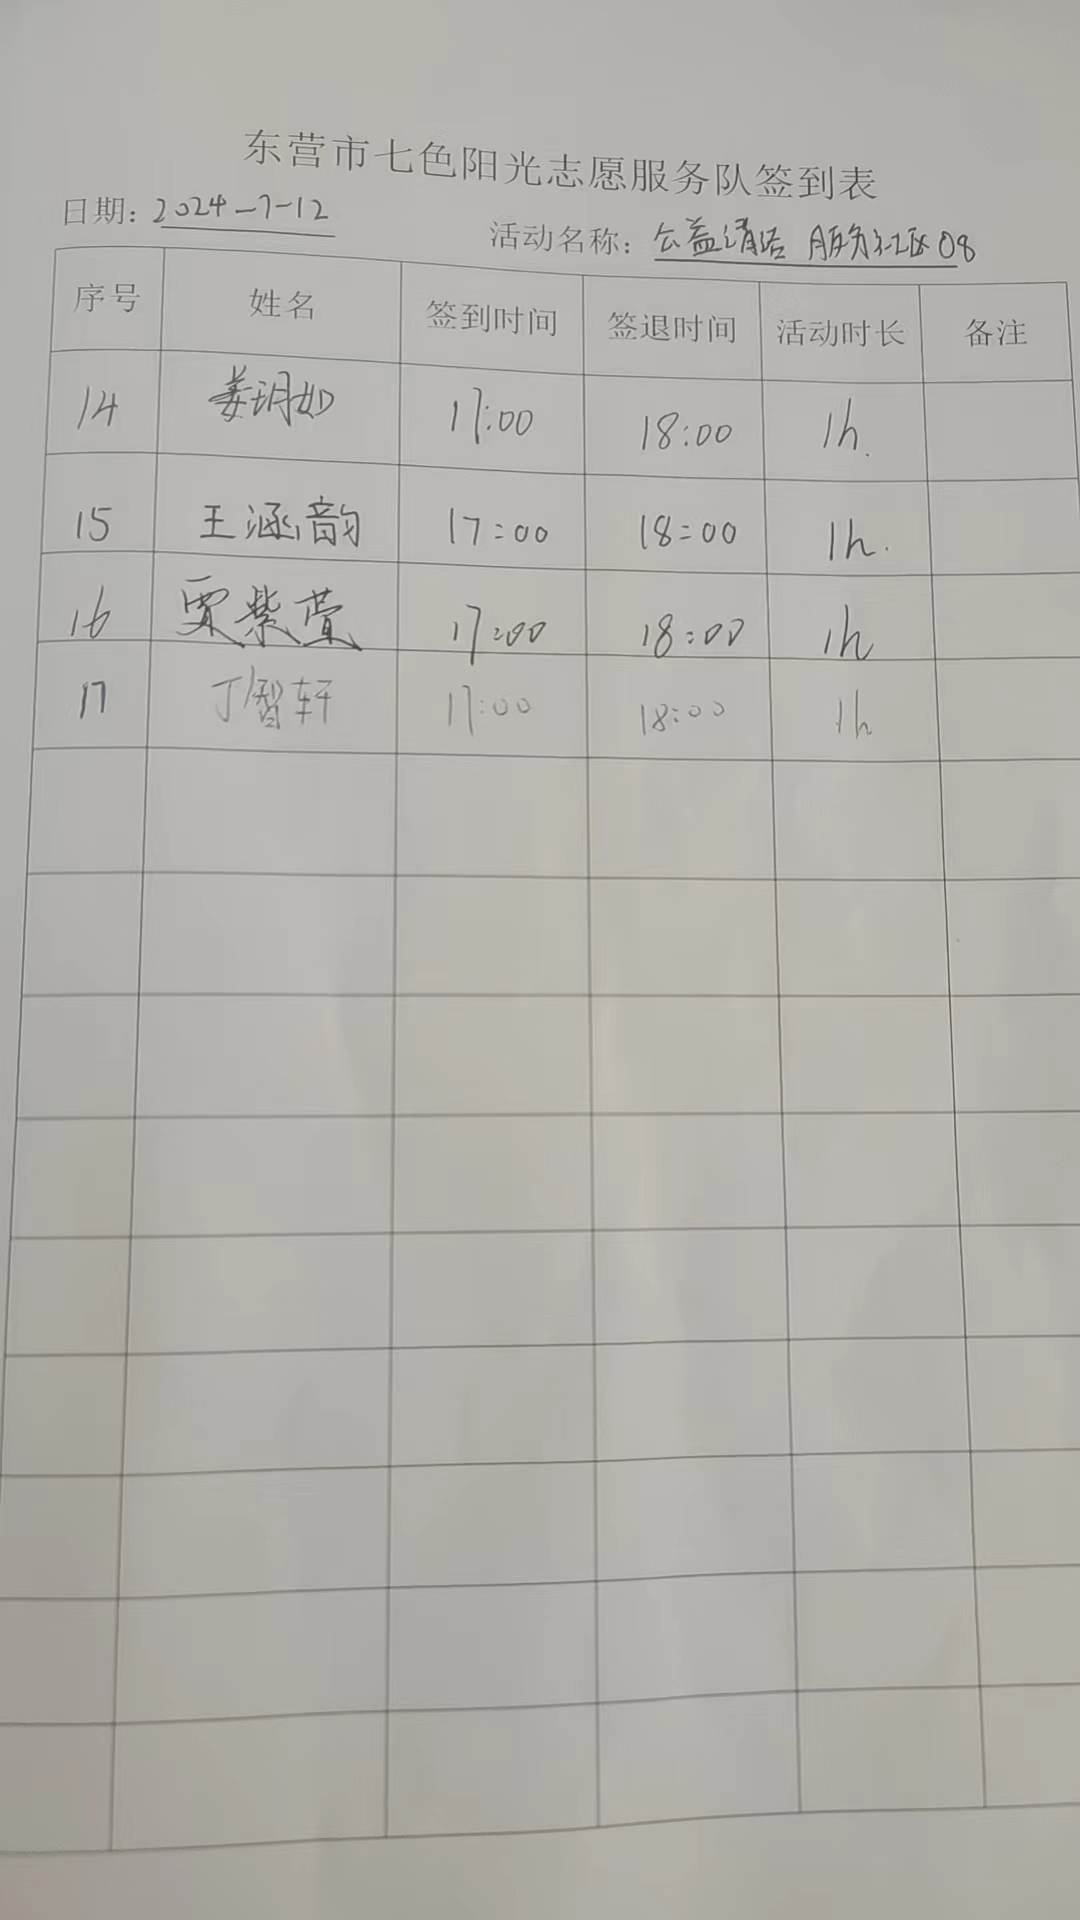 东营市七色阳光志愿服务队签到表
日期: 2024-7-12 活动名称: 公益清洁 服务社区08
序号 姓名 签到时间 签退时间 活动时长 备注
14 姜玥如 17:00 18:00 1h.
15 王涵韵 17:00 18:00 1h.
16 贾紫萱 17:00 18:00 1h
17 丁智轩 17:00 18:00 1h